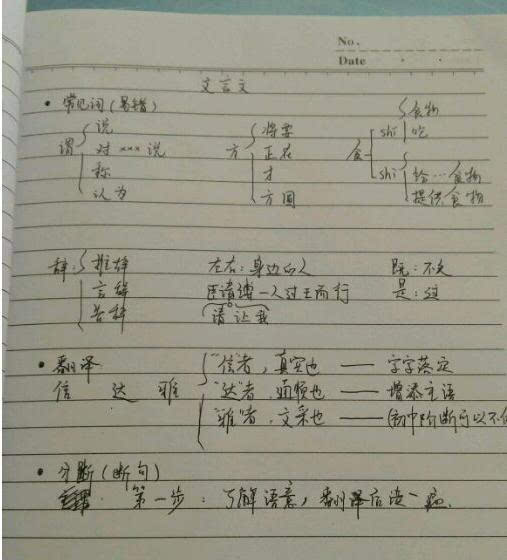 No.
Date
文言文
• 常见词(易错)
谓 说
对×××说
称
认为
方 将要
正在
才
方圆
食 shí 食物
吃
sì 给…食物
提供食物
辞: 推辞
言辞
告辞
左右: 身边的人
臣请缚一人过王而行
请让我
既: 不久
是: 这
• 翻译
信 达 雅
"信"者, 真实也 —— 字字落定
"达"者, 通顺也 —— 增添主语
"雅"者, 文采也 —— (初中阶段可以不
• 分断(断句)
第一步: 了解语意, 翻译后读一遍.